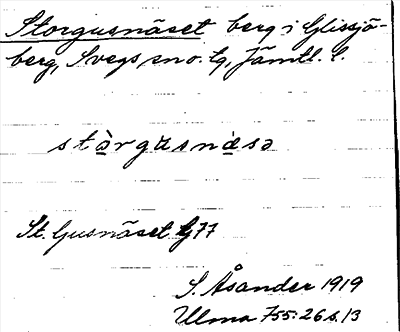 Storgusnäset berg i Glissjö-
berg, Svegs sno. tg, Jämtl. l.
stårgusnäsə
St. Gusnäset G77
S. Åsander 1919
Ulma 755:26 s. 13